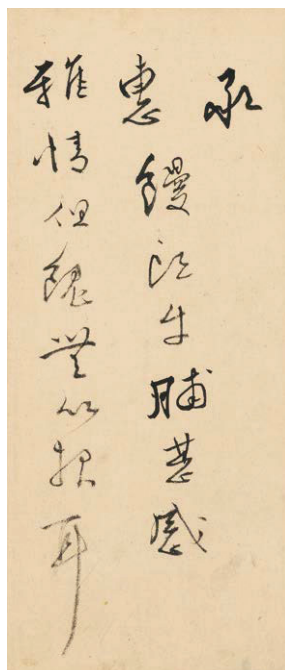 承
惠饅頭牛脯甚感
雅情但愧無以報耳